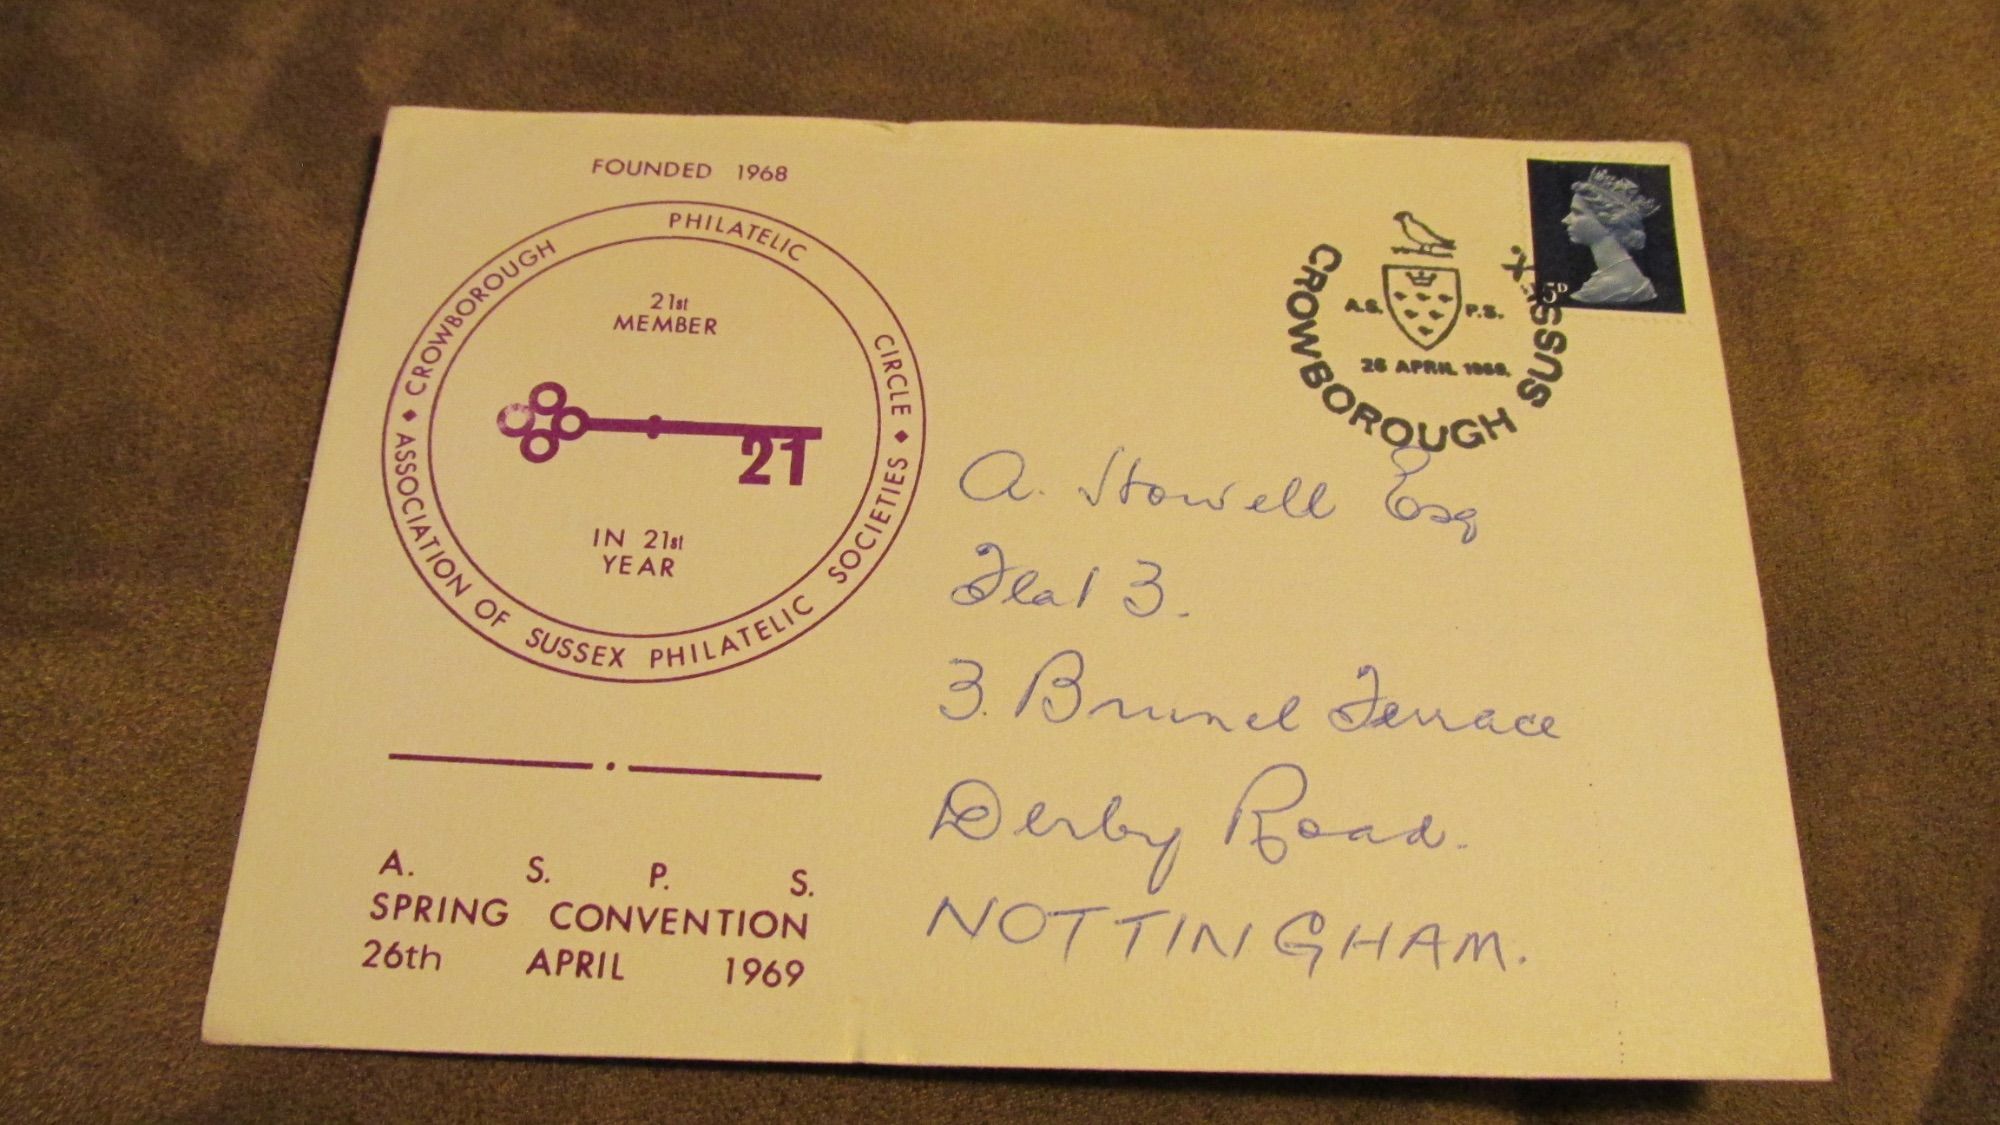 FOUNDED 1968
CROWBOROUGH PHILATELIC CIRCLE
ASSOCIATION OF SUSSEX PHILATELIC SOCIETIES
21st
MEMBER
21
IN 21st
YEAR
A. S. P. S.
SPRING CONVENTION
26th APRIL 1969
5D
A.S. P.S.
26 APRIL 1969.
CROWBOROUGH SUSSEX.
A. Stowell Esq
Flat 3.
3. Brunel Terrace
Derby Road.
NOTTINGHAM.